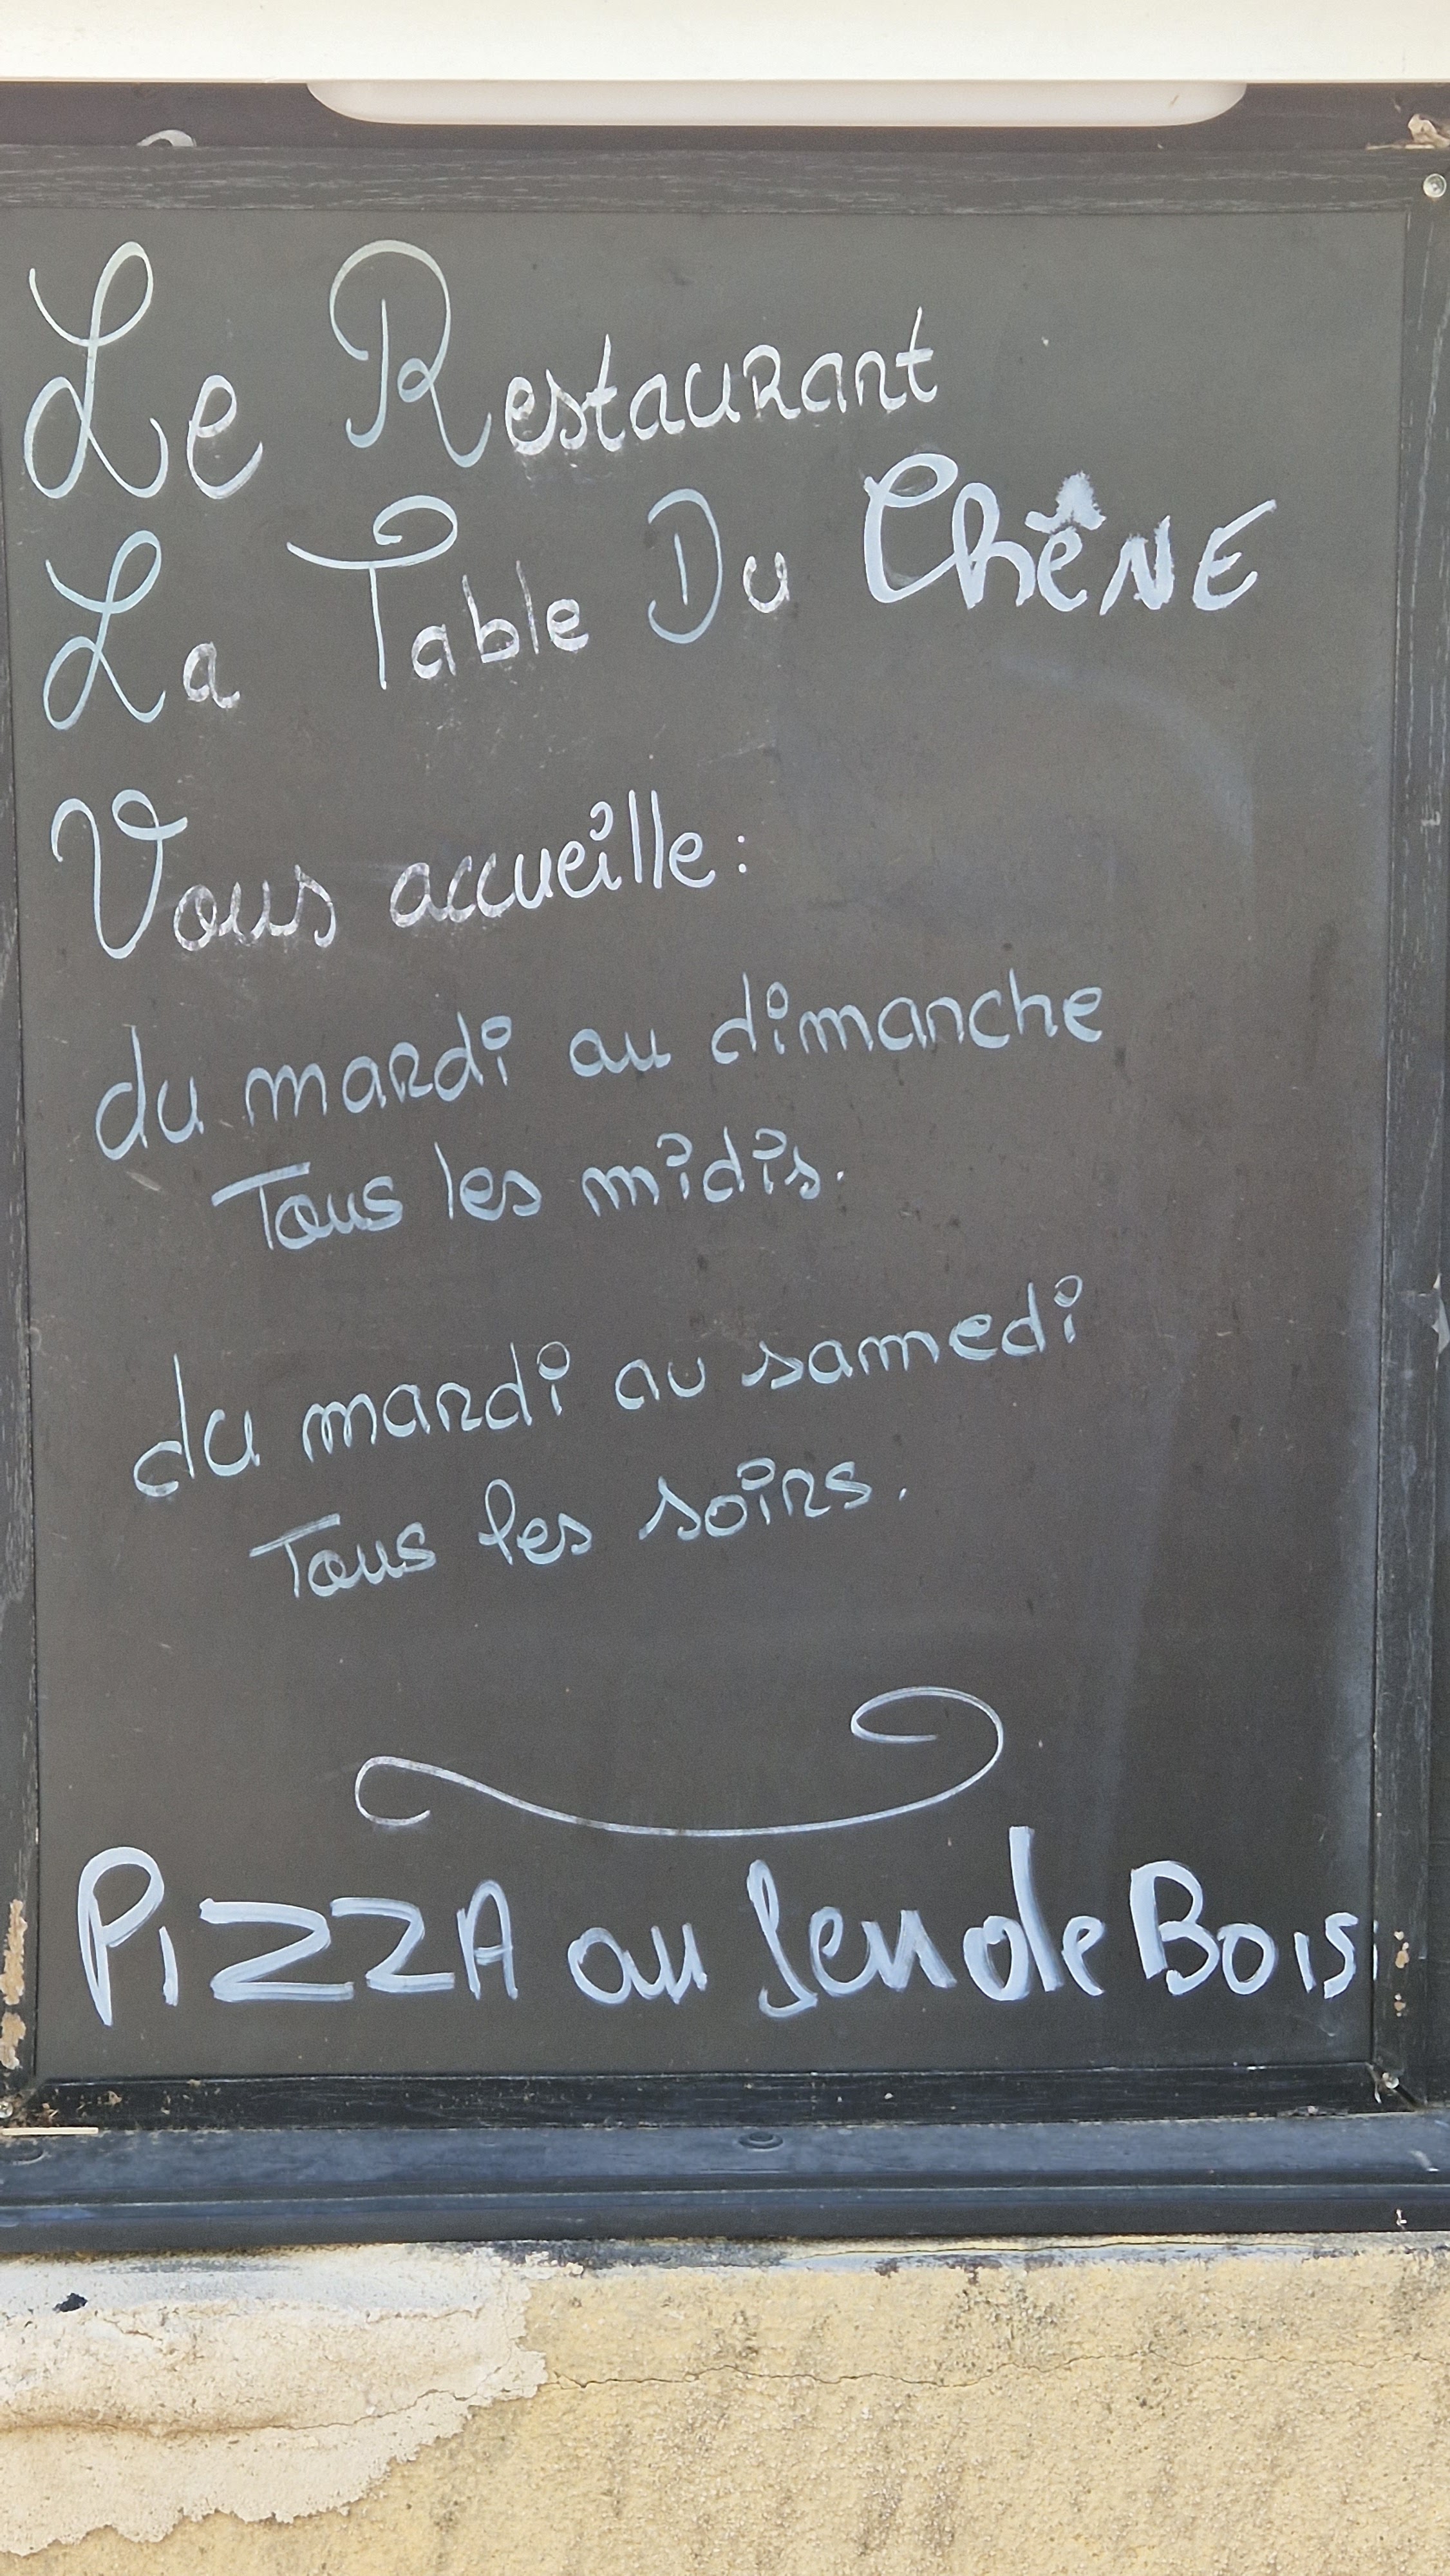 Le Restaurant
La Table Du ChêNE
Vous accueille :
du mardi au dimanche
Tous les midis.
du mardi au samedi
Tous les soirs.
PIZZA au feu de Bois